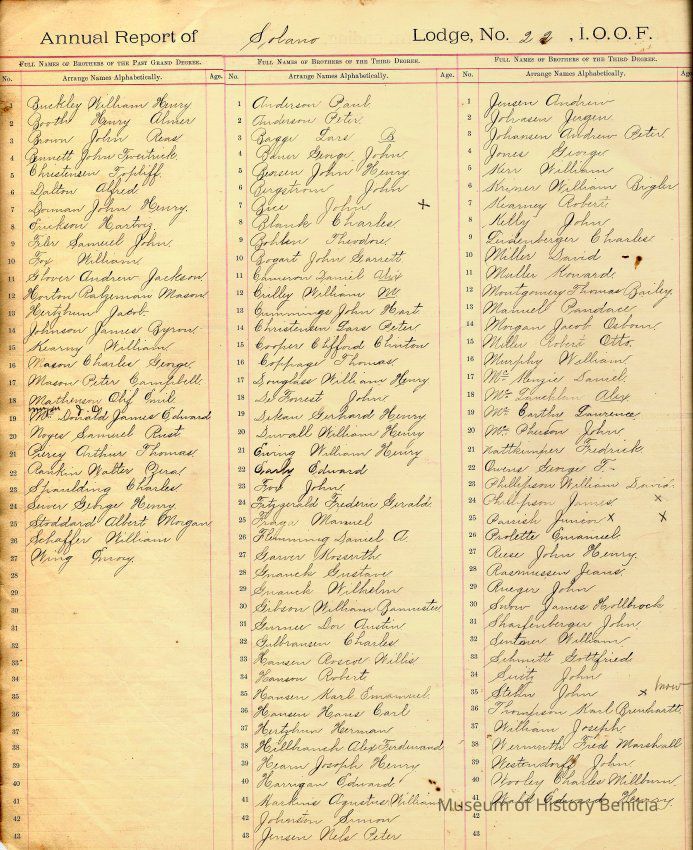 Annual Report of Solano Lodge, No. 22, I.O.O.F.
Full Names of Brothers of the Past Grand Degree.
No. Arrange Names Alphabetically. Age.
1 Buckley William Henry
2 Booth Henry Almer
3 Brown John Reas
4 Bennett John Fredrick
5 Christensen Topliff
6 Dalton Alfred
7 Dorman John Henry.
8 Erickson Hartvig
9 Filer Samuel John.
10 Fox William.
11 Glover Andrew Jackson
12 Horton Mason
13 Hertzhum Jacob.
14 Johnson James Byron.
15 Kearny William
16 Mason Charles George.
17 Mason Peter Campbell.
18 Mathenson Olif Emil
19 Mc Donald James Edward
20 Noyes Samuel Rust
21 Piercy Arthur Thomas
22 Rankin Walter
23 Spaulding Charles
24 Sewer George Henry
25 Stoddard Albert Morgan
26 Schaffer William
27 Wing Envoy
28
29
30
31
32
33
34
35
36
37
38
39
40
41
42
43
Full Names of Brothers of the Third Degree.
No. Arrange Names Alphabetically. Age.
1 Anderson Paul
2 Anderson Peter
3 Bagge Lars B
4 Bauer George John
5 John Henry
6 Bergstrom John
7 Bice John x
8 Blank Charles
9 Bohlen Theodore
10 Bogart John Garrett
11 Cameron Daniel Alex
12 Crilley William Mc
13 Cummings John Hart
14 Christensen Lars Peter
15 Cooper Clifford Clinton
16 Coppage Thomas
17 Douglass William Henry
18 De Forest John
19 Gerhard Henry
20 Duvall William Henry
21 Ewing William Henry
22 Early Edward
23 Fox John
24 Fitzgerald Frederic Gerald.
25 Manuel
26 Flemming Daniel A.
27 Garver Kossuth
28 Gnauck Gustave
29 Gnauck Wilhelm
30 Gibson William Bannister
31 Dor Austin
32 Gulbransen Charles
33 Hansen Roscoe Willis
34 Hanson Robert
35 Hansen Karl Emanuel
36 Hansen Hans Carl
37 Hertzhum Herman
38 Alex Ferdinand
39 Hearn Joseph Henry
40 Harrigan Edward
41 Harkins Agustus William
42 Johnston Simon
43 Jensen Nels Peter
Full Names of Brothers of the Third Degree.
No. Arrange Names Alphabetically. Age
1 Jensen Andrew
2 Johnsen Jurgen
3 Johansen Andrew Peter
4 Jones George
5 Kerr William
6 William Bigler
7 Kearney Robert
8 Kelly John
9 Leidenberger Charles
10 Miller David
11 Muller Konard
12 Montgomery Thomas Bailey
13 Manuel
14 Morgan Jacob Osburn
15 Miller Robert Otto.
16 Murphy William
17 Mc Kenzie Daniel.
18 Mc Lauchlan Alex
19 Mc Carthy Laurence
20 Mc Pherson John
21 Nattkemper Fredrick
22 Owens George F.
23 Phillipson William David.
24 Phillipson James x
25 Parrish Junior x x
26 Prolette Emanuel
27 Reese John Henry.
28 Rasmussen Jeans.
29 Rueger John
30 Snow James Hollbrock
31 Sharfenberger John
32 Sentner William
33 Schmitt Gottfried
34 Seitz John
35 Stelln John x
36 Thompson Karl Brenhardt
37 William Joseph
38 Wermuth Fred Marshall
39 Westerdorf John
40 Wooley Charles Millburn
41 Edward Henry
42
43
Museum of History Benicia